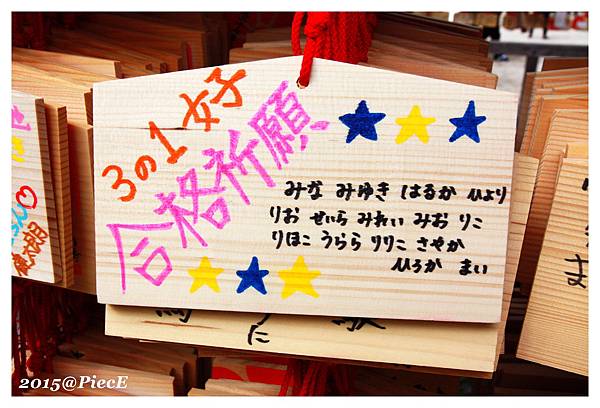 3の1女子
合格祈願
みな みゆき はるか ひより
りお せいら みれい みお りこ
りほこ うらら りりこ さやか
ひろか まい
に
2015@PiecE